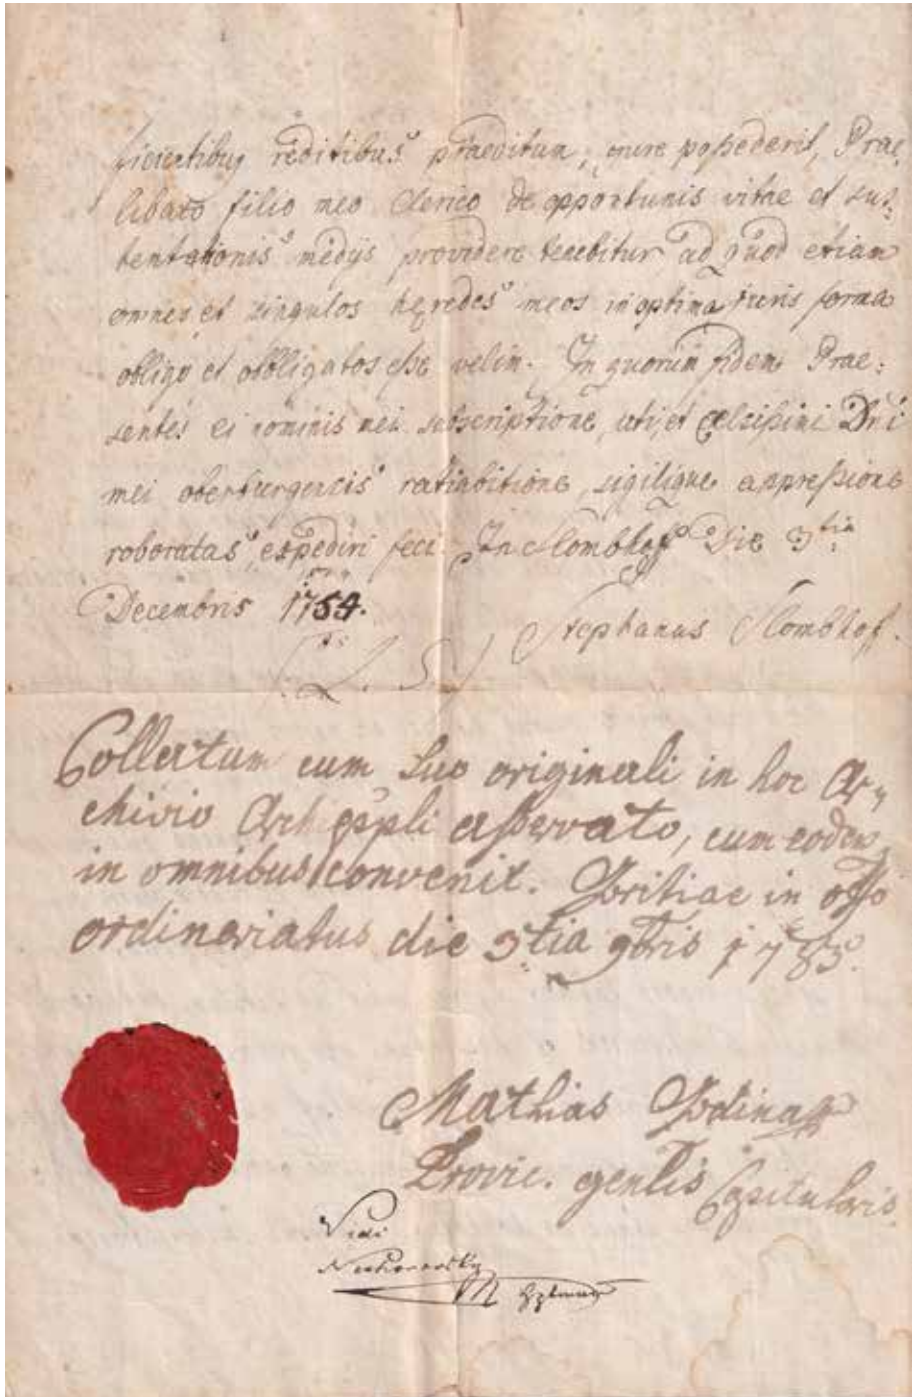 ficientibus reditibus praeditum, onere possederit, Prae,
libato filio meo Clerico de opportunis vitae et sus,
tentationis medijs providere tenebitur, ad quod etiam
omnes et singulos heredes meos in optima iuris forma
obligo et obligatos esse velim. In quorum fidem Prae:
sentes ei nominis mei subscriptione, uti, et Celsissimi Dni
mei oberburgensis ratihabitione, sigilique appressione
roboratas, expediri feci. In Slombhoff Die 3tia
Decembris 1754.
Stephanus Slombhof.
(L. S.)
Collatum cum suo originali in hoc Ar,,
chivio Archieppli asservato, cum eodem
in omnibus convenit. Goritiae in offo
ordinariatus die 3tia 9bris 1785.
Mathias
Provic. genlis Capitularis.
Vidi